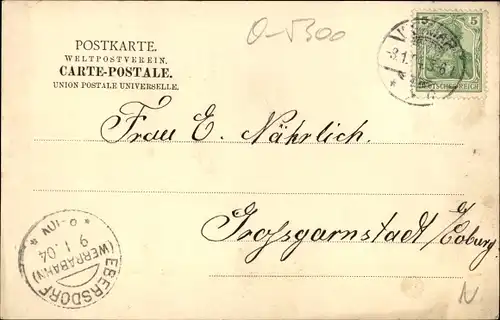 O-5300
POSTKARTE.
WELTPOSTVEREIN.
CARTE-POSTALE.
UNION POSTALE UNIVERSELLE.
5 5
DEUTSCHES REICH
Frau E. Nährlich.
Grossgarnstadt/Coburg
EBERSDORF
(WERRABAHN)
9.1.04
N.